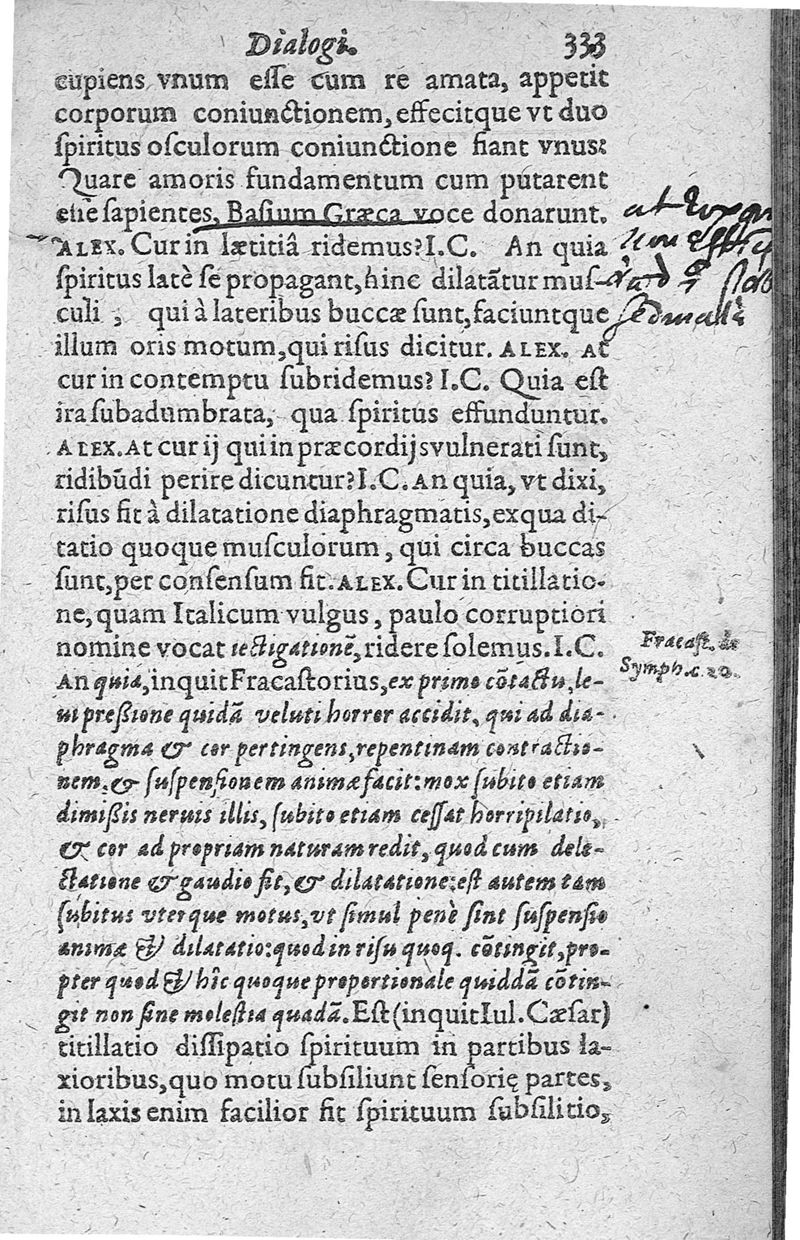 Dialogi. 333
cupiens vnum esse cum re amata, appetit
corporum coniunctionem, effecitque vt duo
spiritus osculorum coniunctione fiant vnus:
Quare amoris fundamentum cum putarent
esse sapientes, Basium Græca voce donarunt.
ALEX. Cur in lætitiâ ridemus? I.C. An quia
spiritus latè se propagant, hinc dilatãtur mus-
culi, qui à lateribus buccæ sunt, faciuntque
illum oris motum, qui risus dicitur. ALEX. At
cur in contemptu subridemus? I.C. Quia est
ira subadumbrata, qua spiritus effunduntur.
ALEX. At cur ij qui in præcordijs vulnerati sunt,
ridibũdi perire dicuntur? I.C. An quia, vt dixi,
risus fit à dilatatione diaphragmatis, ex qua di-
tatio quoque musculorum, qui circa buccas
sunt, per consensum fit. ALEX. Cur in titillatio-
ne, quam Italicum vulgus, paulo corruptiori
nomine vocat tectigationẽ, ridere solemus. I.C.
An quia, inquit Fracastorius, ex primo cõtactu, le-
ui pressione quidã veluti horror accidit, qui ad dia-
phragma & cor pertingens, repentinam contractio-
nem, & suspensionem animæ facit: mox subito etiam
dimissis neruis illis, subito etiam cessat horripilatio,
& cor ad propriam naturam redit, quod cum dele-
ctatione & gaudio fit, & dilatatione: est autem tam
subitus vterque motus, vt simul penè sint suspensio
animæ & dilatatio: quod in risu quoq. cõtingit, pro-
pter quod & hîc quoque proportionale quiddã cõtin-
git non sine molestia quadã. Est (inquit Iul. Cæsar)
titillatio dissipatio spirituum in partibus la-
xioribus, quo motu subsiliunt sensorię partes,
in laxis enim facilior fit spirituum subsilitio,
Fracast. de
Symph. c. 20.